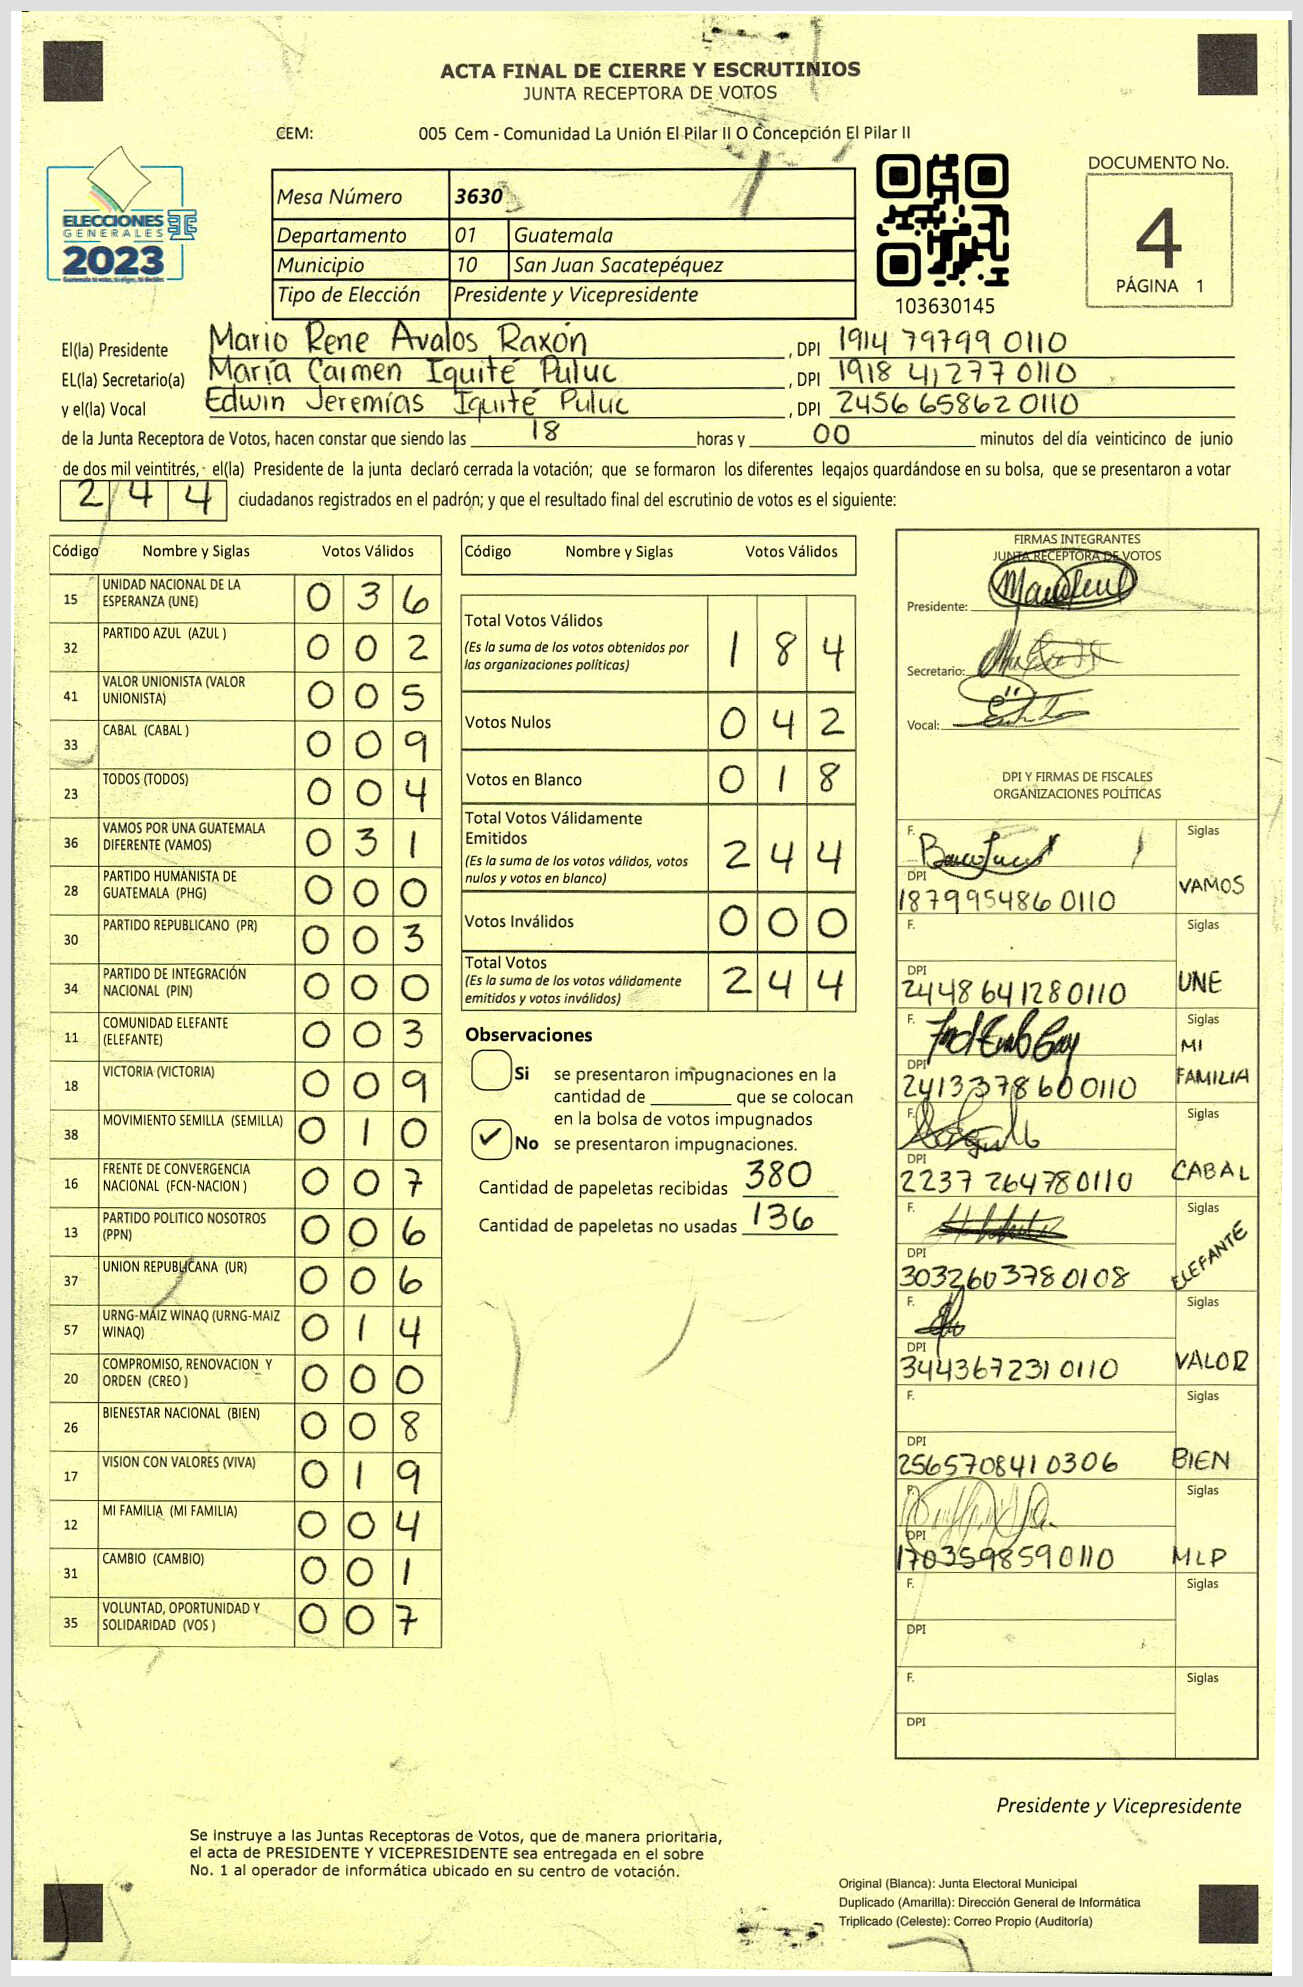 ACTA FINAL DE CIERRE Y ESCRUTINIOS
JUNTA RECEPTORA DE VOTOS
CEM: 005 Cem - Comunidad La Unión El Pilar II O Concepción El Pilar II
ELECCIONES
GENERALES
2023
Mesa Número 3630
Departamento 01 Guatemala
Municipio 10 San Juan Sacatepéquez
Tipo de Elección Presidente y Vicepresidente
103630145
DOCUMENTO No.
4
PÁGINA 1
El(la) Presidente Mario Rene Avalos Raxón, DPI 1914 79799 0110
EL(la) Secretario(a) María Carmen Iquité Puluc, DPI 1918 41277 0110
y el(la) Vocal Edwin Jeremías Iquité Puluc, DPI 2456 65862 0110
de la Junta Receptora de Votos, hacen constar que siendo las 18 horas y 00 minutos del día veinticinco de junio
de dos mil veintitrés, el(la) Presidente de la junta declaró cerrada la votación; que se formaron los diferentes legajos guardándose en su bolsa, que se presentaron a votar
244 ciudadanos registrados en el padrón; y que el resultado final del escrutinio de votos es el siguiente:
Código Nombre y Siglas Votos Válidos
15 UNIDAD NACIONAL DE LA ESPERANZA (UNE) 036
32 PARTIDO AZUL (AZUL ) 002
41 VALOR UNIONISTA (VALOR UNIONISTA) 005
33 CABAL (CABAL ) 009
23 TODOS (TODOS) 004
36 VAMOS POR UNA GUATEMALA DIFERENTE (VAMOS) 031
28 PARTIDO HUMANISTA DE GUATEMALA (PHG) 000
30 PARTIDO REPUBLICANO (PR) 003
34 PARTIDO DE INTEGRACIÓN NACIONAL (PIN) 000
11 COMUNIDAD ELEFANTE (ELEFANTE) 003
18 VICTORIA (VICTORIA) 009
38 MOVIMIENTO SEMILLA (SEMILLA) 010
16 FRENTE DE CONVERGENCIA NACIONAL (FCN-NACION ) 007
13 PARTIDO POLITICO NOSOTROS (PPN) 006
37 UNION REPUBLICANA (UR) 006
57 URNG-MAIZ WINAQ (URNG-MAIZ WINAQ) 014
20 COMPROMISO, RENOVACION Y ORDEN (CREO ) 000
26 BIENESTAR NACIONAL (BIEN) 008
17 VISION CON VALORES (VIVA) 019
12 MI FAMILIA (MI FAMILIA) 004
31 CAMBIO (CAMBIO) 001
35 VOLUNTAD, OPORTUNIDAD Y SOLIDARIDAD (VOS ) 007
Código Nombre y Siglas Votos Válidos
Total Votos Válidos 184
(Es la suma de los votos obtenidos por
las organizaciones políticas)
Votos Nulos 042
Votos en Blanco 018
Total Votos Válidamente
Emitidos 244
(Es la suma de los votos válidos, votos
nulos y votos en blanco)
Votos Inválidos 000
Total Votos 244
(Es la suma de los votos válidamente
emitidos y votos inválidos)
Observaciones
Si se presentaron impugnaciones en la
cantidad de ________ que se colocan
en la bolsa de votos impugnados
✓ No se presentaron impugnaciones.
Cantidad de papeletas recibidas 380
Cantidad de papeletas no usadas 136
FIRMAS INTEGRANTES
JUNTA RECEPTORA DE VOTOS
Presidente:
Secretario:
Vocal:
DPI Y FIRMAS DE FISCALES
ORGANIZACIONES POLÍTICAS
F. Siglas
DPI 187995486 0110 VAMOS
F. Siglas
DPI 2448641280110 UNE
F. Siglas
DPI 2413378600110 MI FAMILIA
F. Siglas
DPI 2237 264780110 CABAL
F. Siglas
DPI 3032603780108 ELEFANTE
F. Siglas
DPI 344367231 0110 VALOR
F. Siglas
DPI 2565708410306 BIEN
F. Siglas
DPI 1703598590110 MLP
F. Siglas
DPI
F. Siglas
DPI
Presidente y Vicepresidente
Se instruye a las Juntas Receptoras de Votos, que de manera prioritaria,
el acta de PRESIDENTE Y VICEPRESIDENTE sea entregada en el sobre
No. 1 al operador de informática ubicado en su centro de votación.
Original (Blanca): Junta Electoral Municipal
Duplicado (Amarilla): Dirección General de Informática
Triplicado (Celeste): Correo Propio (Auditoría)